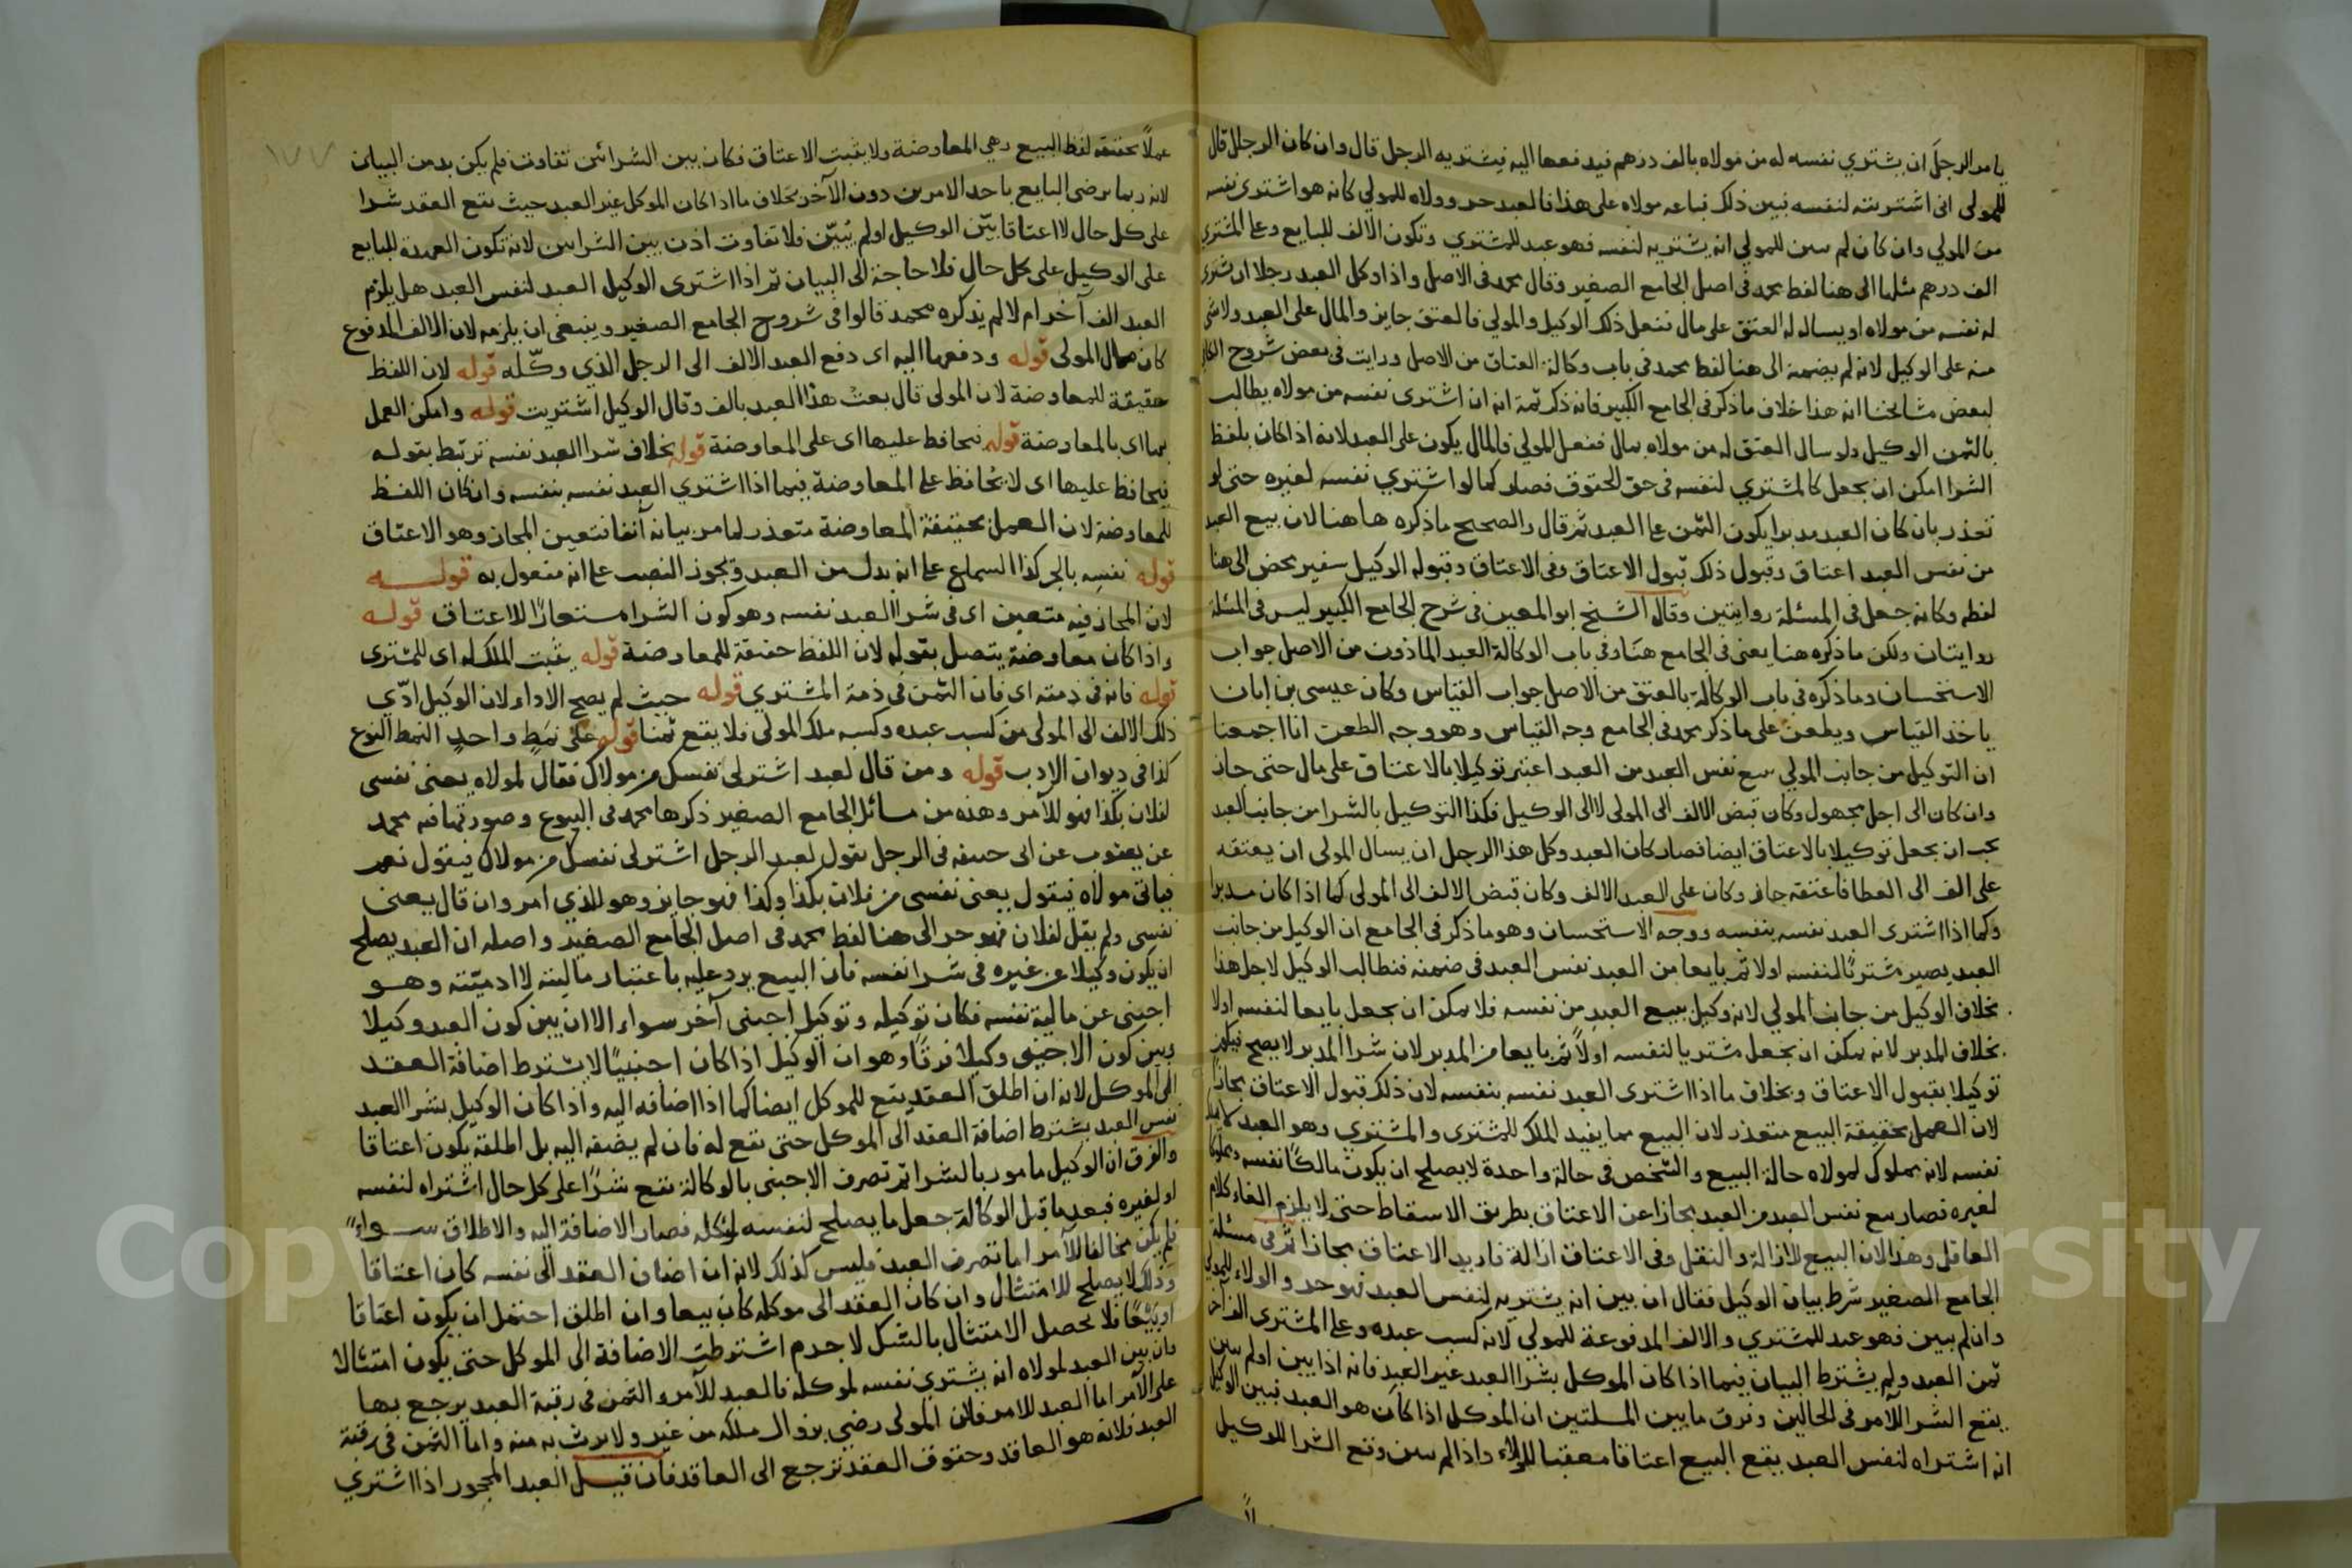 يامر الرجل ان يشتري نفسه له من مولاه بالف درهم فيدفعها اليه فيشتريه الرجل قال وان كان الرجل قال
للمولى انى اشتريته لنفسه فبين ذلك فباعه مولاه على هذا فالعبد حر وولاه للمولي كانه هو اشترى نفسه
من المولي وان كان لم يبين للمولي انه يشتريه لنفسه فهو عبد للمشتري وتكون الالف للبايع وعلى المشتري
الف درهم مثلها الى هنا لفظ محمد في اصل الجامع الصغير وقال محمد في الاصل واذا وكل العبد رجلا ان يشترى
له نفسه من مولاه او يساله له العتق على مال ففعل ذلك الوكيل والمولي فالعتق جايز والمال على العبد ولا شى
منه على الوكيل لانه لم يضمنه الى هنا لفظ محمد في باب وكالة العتاق من الاصل ورايت في بعض شروح
لبعض مشايخنا ان هذا خلاف ما ذكر في الجامع الكبير فانه ذكر ثمة انه ان اشترى نفسه من مولاه يطالب
بالثمن الوكيل ولو سال العتق له من مولاه بمال ففعل المولي فالمال يكون على العبد لانه اذا كان بلفظ
الشرا امكن ان يجعل كالمشتري لنفسه في حق الحقوق فصار كما لو اشتري نفسه لغيره حتى لو
تعذر بان كان العبد مدبرا يكون الثمن على العبد ثم قال والصحيح ما ذكره هاهنا لان بيع العبد
من نفس العبد اعتاق وقبول ذلك قبول الاعتاق وفى الاعتاق وقبوله الوكيل سفير محض الى هنا
لفظه وكانه جعل في المسئلة روايتين وقال الشيخ ابو المعين في شرح الجامع الكبير ليس في المسئلة
روايتان ولكن ما ذكره هنا يعنى في الجامع هنا وفي باب الوكالة العبد الماذون من الاصل جواب
الاستحسان وما ذكره في باب الوكالة بالعتق من الاصل جواب القياس وكان عيسى بن ابان
ياخذ القياس ويطعن على ما ذكر محمد في الجامع وجه القياس وهو وجه الطعن انا اجمعنا
ان التوكيل من جانب المولي ببيع نفس العبد من العبد اعتبر توكيلا بالاعتاق على مال حتى جاز
وان كان الى اجل مجهول وكان قبض الالف الى المولى لا الى الوكيل فكذا التوكيل بالشرا من جانب العبد
يجب ان يجعل توكيلا بالاعتاق ايضا فصار كان العبد وكل هذا الرجل ان يسال المولى ان يعتقه
على الف الى العطا فاعتقه جاز وكان على العبد الالف وكان قبض الالف الى المولى كما اذا كان مدبرا
وكما اذا اشترى العبد نفسه بنفسه ووجه الاستحسان وهو ما ذكر في الجامع ان الوكيل من جانب
العبد يصير مشتريا لنفسه اولا ثم بايعا من العبد نفس العبد في ضمنه فتطالب الوكيل لاجل هذا
بخلاف الوكيل من جانب المولي لانه وكيل ببيع العبد من نفسه فلا يمكن ان يجعل بايعا لنفسه اولا
بخلاف المدبر لانه يمكن ان يجعل مشتريا لنفسه اولاً ثم بايعا من المدبر لان شرا المدبر لا يصح فيكون
توكيلا بقبول الاعتاق وبخلاف ما اذا اشترى العبد نفسه بنفسه لان ذلك قبول الاعتاق مجازا
لان العمل بحقيقة البيع متعذر لان البيع مما يفيد الملك للمشترى والمشتري وهو العبد
نفسه لانه مملوك لمولاه حالة البيع والشخص في حالة واحدة لا يصلح ان يكون مالكًا نفسه ومملوكا
لغيره فصار بيع نفس العبد من العبد مجازا عن الاعتاق بطريق الاسقاط حتى لا يلزم الغاء كلام
العاقل وهذا لان البيع للازالة والنقل وفى الاعتاق ازالة فاريد الاعتاق مجازا ثم في مسئلة
الجامع الصغير شرط بيان الوكيل فقال ان بين انه يشتريه لنفس العبد فهو حر والولاء للمولي
وان لم يبين فهو عبد للمشتري والالف المدفوعة للمولي لانه كسب عبده وعلى المشترى الف اخر
ثمن العبد ولم يشترط البيان فيما اذا كان الموكل بشرا العبد غير العبد فانه اذا بين اولم يبين
يقع الشرا للآمر في الحالين وفرق ما بين المسلتين ان الموكل اذا كان هو العبد فبين الوكيل
انه اشتراه لنفس العبد يقع البيع اعتاقا معقبا للولاء واذا لم يبين وقع الشرا للوكيل
عملاً بحقيقة لفظ البيع وهي المعاوضة ولا يثبت الاعتاق فكان بين الشرائين تفاوت فلم يكن بد من البيان
لانه ربما يرضى البايع باحد الامرين دون الآخر بخلاف ما اذا كان الموكل غير العبد حيث يقع العقد شرا
على كل حال لا اعتاقا بيّن الوكيل اولم يُبيّن فلا تفاوت اذن بين الشرايين لانه تكون العهدة للبايع
على الوكيل على كل حال فلا حاجة الى البيان ثم اذا اشترى الوكيل العبد لنفس العبد هل يلزم
العبد الف آخر ام لا لم يذكره محمد قالوا في شروح الجامع الصغير وينبغى ان يلزمه لان الالف المدفوع
كان مال المولى قوله ودفعها اليه اى دفع العبد الالف الى الرجل الذي وكّله قوله لان اللفظ
حقيقة للمعاوضة لان المولى قال بعت هذا العبد بالف وقال الوكيل اشتريت قوله وامكن العمل
بها اى بالمعاوضة قوله فيحافظ عليها اى على المعاوضة قوله بخلاف شرا العبد نفسه ترتبط بقوله
فيحافظ عليها اى لا يحافظ على المعاوضة فيما اذا اشتري العبد نفسه بنفسه وان كان اللفظ
للمعاوضة لان العمل بحقيقة المعاوضة متعذر لما مر بيانه آنفا فتعين المجاز وهو الاعتاق
قوله نفسِه بالجر كذا السماع على انه بدل من العبد ويجوز النصب على انه مفعول به قوله
لان المجاز فيه متعين اى في شرا العبد نفسه وهو كون الشرا مستعارًا للاعتاق قوله
واذا كان معاوضة يتصل بقوله لان اللفظ حقيقة للمعاوضة قوله يثبت الملك له اى للمشترى
قوله فانه في ذمته اى فان الثمن في ذمة المشتري قوله حيث لم يصح الاداء لان الوكيل ادّي
ذلك الالف الى المولى من كسب عبده وكسبه ملك المولى فلا يقع ثمنا قوله على نمط واحد النمط النوع
كذا في ديوان الادب قوله ومن قال لعبد اشتر لى نفسك من مولاك فقال لمولاه بعنى نفسى
لفلان بكذا فهو للآمر وهذه من مسائل الجامع الصغير ذكرها محمد في البيوع وصورتها فيه محمد
عن يعقوب عن ابى حنيفه في الرجل يقول لعبد الرجل اشتر لى نفسك من مولاك فيقول نعم
فياتى مولاه فيقول بعنى نفسى من فلان بكذا وكذا فهو جايز وهو للذي امر وان قال بعنى
نفسى ولم يقل لفلان فهو حر الى هنا لفظ محمد في اصل الجامع الصغير واصله ان العبد يصلح
ان يكون وكيلا عن غيره في شرا نفسه فان البيع يرد عليه باعتبار ماليته لا ادميّته وهو
اجنبى عن مالية نفسه فكان توكيله وتوكيل اجنبى آخر سواء الا ان بين كون العبد وكيلا
وبين كون الاجنبي وكيلا فرقًا وهو ان الوكيل اذا كان اجنبيًا لا يشترط اضافة العقد
الى الموكل لانه ان اطلق العقد يقع للموكل ايضا كما اذا اضافه اليه واذا كان الوكيل بشرا العبد
نفس العبد يشترط اضافة العقد الى الموكل حتى يقع له فان لم يضفه اليه بل اطلقه يكون اعتاقا
والفرق ان الوكيل مامور بالشرا ثم تصرف الاجنبى بالوكالة يقع شرًا على كل حال اشتراه لنفسه
او لغيره فبعد ما قبل الوكالة جعل ما يصلح لنفسه لموكله فصار الاضافة اليه والاطلاق سواءً
فلم يكن مخالفا للآمر اما تصرف العبد فليس كذلك لانه ان اضاف العقد الى نفسه كان اعتاقا
وذلك لا يصلح للامتثال وان كان العقد الى موكله كان بيعا وان اطلق احتمل ان يكون اعتاقا
او بَيعًا فلا يحصل الامتثال بالشك لا جرم اشترطت الاضافة الى الموكل حتى يكون امتثالا
فان بين العبد لمولاه انه يشتري نفسه لموكله فالعبد للآمر والثمن في رقبة العبد يرجع بها
على الآمر اما العبد للامر فلان المولى رضي بزوال ملكه من غير ولا يرث به منه واما الثمن في رقبة
العبد فلانه هو العاقد وحقوق العقد ترجع الى العاقد فان قيل العبد المحجور اذا اشتري
١٧٧
Copy University